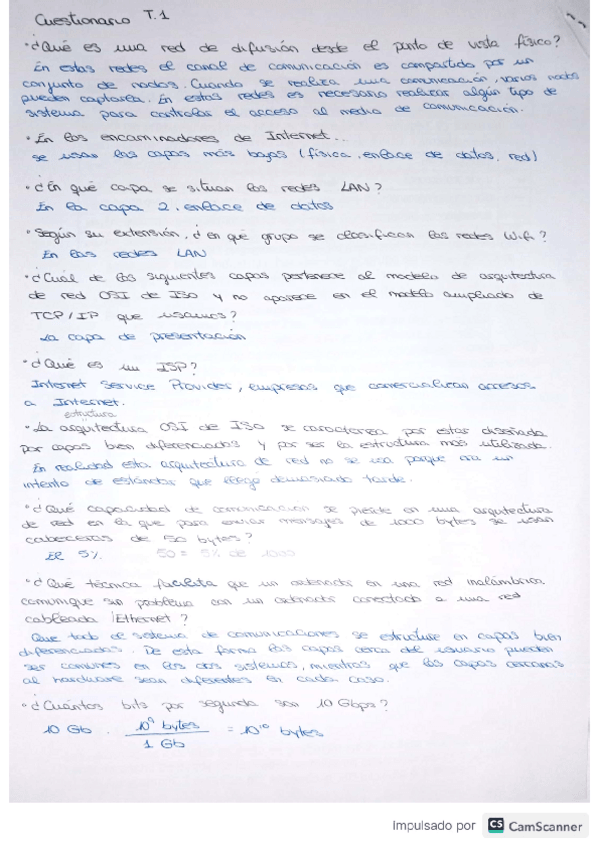 Cuestionario T.1
• ¿Qué es una red de difusión desde el punto de vista físico?
En estas redes el canal de comunicación es compartido por un
conjunto de nodos. Cuando se realiza una comunicación, varios nodos
pueden captarla. En estas redes es necesario realizar algún tipo de
sistema para controlar el acceso al medio de comunicación.
• En los encaminadores de Internet...
se usan las capas más bajas (física, enlace de datos, red)
• ¿En qué capa se situan las redes LAN?
En la capa 2, enlace de datos
• Según su extensión, ¿en qué grupo se clasifican las redes Wifi?
En las redes LAN
• ¿Cuál de los siguientes capas pertenece al modelo de arquitectura
de red OSI de ISO y no aparece en el modelo ampliado de
TCP/IP que usamos?
La capa de presentación
• ¿Qué es un ISP?
Internet Service Provider, empresas que comercializan accesos
a Internet.
estructura
• La arquitectura OSI de ISO se caracteriza por estar diseñada
por capas bien diferenciadas y por ser la estructura más utilizada.
En realidad esta arquitectura de red no se usa porque era un
intento de estándar que llegó demasiado tarde.
• ¿Qué capacidad de comunicación se pierde en una arquitectura
de red en la que para enviar mensajes de 1000 bytes se usan
cabeceras de 50 bytes?
El 5% 50 = 5% de 1000
• ¿Qué técnica facilita que un ordenador en una red inalámbrica
comunique sin problema con un ordenador conectado a una red
cableada (Ethernet?
Que todo el sistema de comunicaciones se estructure en capas bien
diferenciadas. De esta forma las capas cerca del usuario pueden
ser comunes en los dos sistemas, mientras que las capas cercanas
al hardware sean diferentes en cada caso.
• ¿Cuántos bits por segundo son 10 Gbps?
10 Gb · 10⁹ bytes / 1 Gb = 10¹⁰ bytes
Impulsado por CS CamScanner